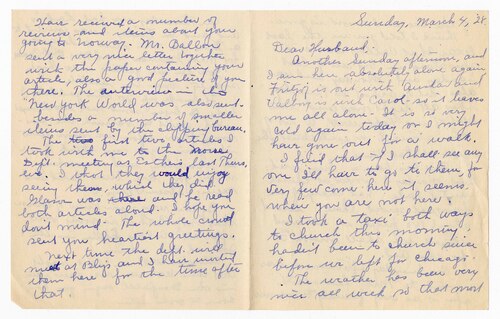 I have received a number of
reviews and items about your
going to Norway. Mr. Dallon
sent a very nice letter together
with the paper containing your
article, also a good picture of you
there. The interview in the
"New York World was also sent
besides a number of smaller
items sent by the clipping bureau.
The two first two articles I
took with me to the
Dept. meeting at Esther's last Thurs.
eve. I thot they would enjoy
seeing them, which they did
was there and he read
both articles aloud. I hope you
don't mind. The whole crowd
sent you heartiest greetings.
Next time the dept. will
meet at Blys and I have invited
them here for the time after
that.
Sunday, March 4, 28
Dear Husband:
Another Sunday afternoon, and
I am here absolutely alone again
is out with and
is with Carol - so it leaves
me all alone. It is so very
cold again today or I might
have gone out for a walk.
I find that if I shall see any
one I'll have to go to them, for
very few come here it seems
when you are not here.
I took a taxi both ways
to church this morning.
hadn't been to church since
before we left for Chicago.
The weather has been very
nice all week so that most